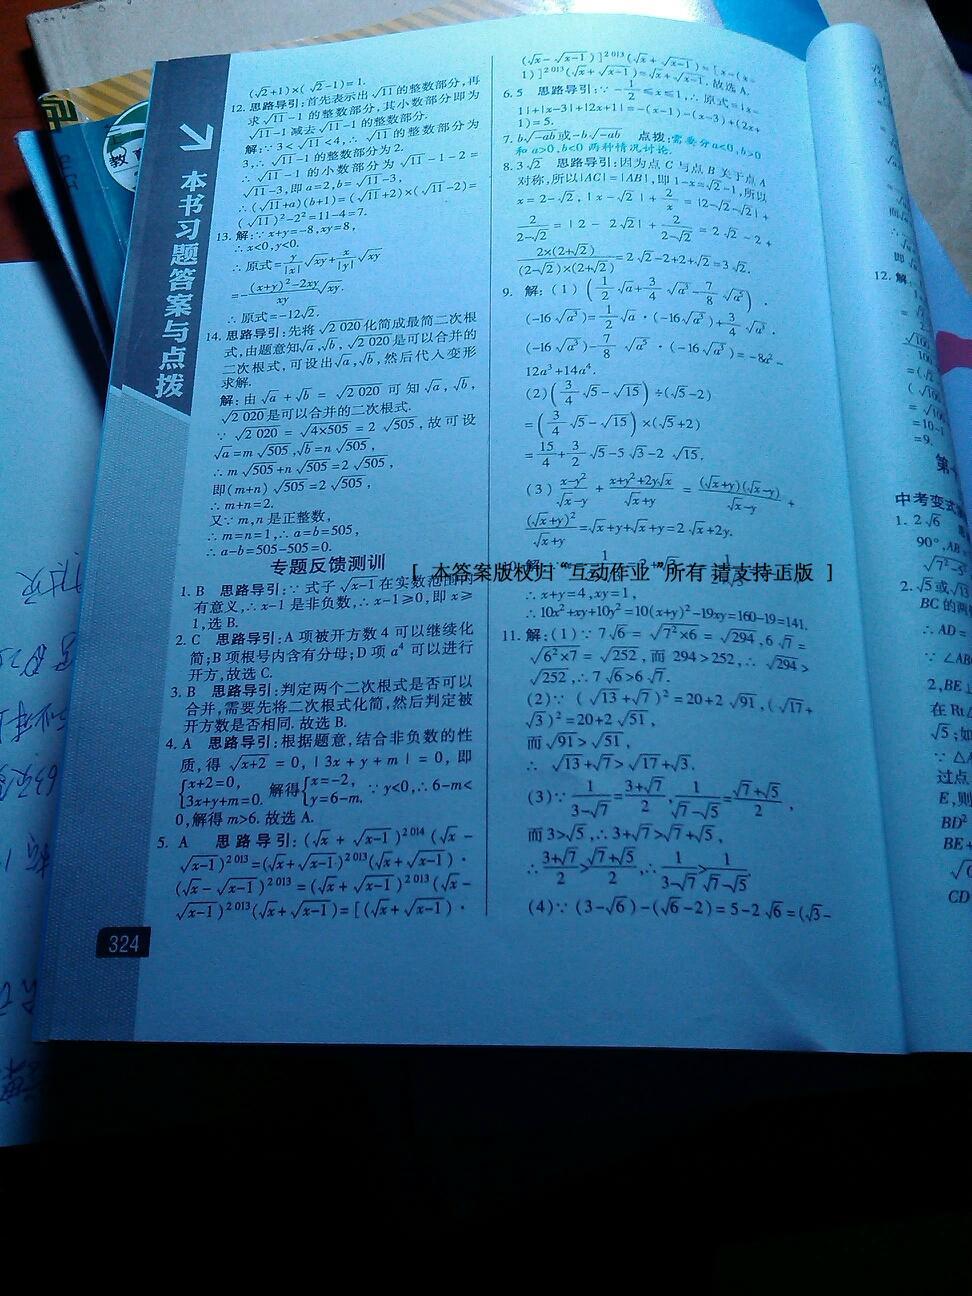 本书习题答案与点拨
(√2+1)×(√2-1)=1.
12. 思路导引:首先表示出√11的整数部分,再
求√11-1的整数部分,其小数部分即为
√11-1减去√11-1的整数部分.
解:∵3<√11<4,∴√11的整数部分为
3,∴√11-1的整数部分为2.
∴√11-1的小数部分为√11-1-2=
√11-3,即a=2,b=√11-3,
∴(√11+a)(b+1)=(√11+2)(√11-2)=
(√11)²-2²=11-4=7.
13. 解:∵x+y=-8,xy=8,
∴x<0,y<0.
∴原式=y/|x|√xy+x/|y|√xy
=-((x+y)²-2xy)/xy√xy.
∴原式=-12√2.
14. 思路导引:先将√2 020化简成最简二次根
式,由题意知√a,√b,√2 020是可以合并的
二次根式,可设出√a,√b,然后代入变形
求解.
解:由√a+√b=√2 020可知√a,√b,
√2 020是可以合并的二次根式.
∵√2 020=√4×505=2√505,故可设
√a=m√505,√b=n√505,
∴m√505+n√505=2√505,
即(m+n)√505=2√505,
∴m+n=2.
又∵m,n是正整数,
∴m=n=1,∴a=b=505,
∴a-b=505-505=0.
专题反馈测训
1. B 思路导引:∵式子√x-1在实数范围内
有意义,∴x-1是非负数,∴x-1≥0,即x≥
1,选B.
2. C 思路导引:A项被开方数4可以继续化
简;B项根号内含有分母;D项a⁴可以进行
开方,故选C.
3. B 思路导引:判定两个二次根式是否可以
合并,需要先将二次根式化简,然后判定被
开方数是否相同.故选B.
4. A 思路导引:根据题意,结合非负数的性
质,得√x+2=0,|3x+y+m|=0,即
{x+2=0, 3x+y+m=0. 解得{x=-2, y=6-m. ∵y<0,∴6-m<
0,解得m>6.故选A.
5. A 思路导引:(√x+√x-1)²⁰¹⁴(√x-
√x-1)²⁰¹³=(√x+√x-1)²⁰¹³(√x+√x-1)·
(√x-√x-1)²⁰¹³=(√x+√x-1)²⁰¹³(√x-
√x-1)²⁰¹³(√x+√x-1)=[(√x+√x-1)·
324
(√x-√x-1)]²⁰¹³(√x+√x-1)=[x-(x-
1)]²⁰¹³(√x+√x-1)=√x+√x-1.故选A.
6. 5 思路导引:∵-1/2≤x≤1,∴原式=|x-
1|+|x-3|+|2x+1|=-(x-1)-(x-3)+(2x+
1)=5.
7. b√-ab或-b√-ab 点拨:需要分a<0,b>0
和a>0,b<0两种情况讨论.
8. 3√2 思路导引:因为点C与点B关于点A
对称,所以|AC|=|AB|,即1-x=√2-1,所以
x=2-√2,|x-√2|+2/x=|2-√2-√2|+
2/(2-√2)=|2-2√2|+2/(2-√2)=2√2-2+
2×(2+√2)/((2-√2)×(2+√2))=2√2-2+2+√2=3√2.
9. 解:(1)(1/2√a+3/4√a³-7/8√a⁵)·
(-16√a³)=1/2√a·(-16√a³)+3/4√a³·
(-16√a³)-7/8√a⁵·(-16√a³)=-8a²-
12a³+14a⁴.
(2)(3/4√5-√15)÷(√5-2)
=(3/4√5-√15)×(√5+2)
=15/4+3/2√5-5√3-2√15.
(3)(x-y²)/(√x-y)+(x+y²+2y√x)/(√x+y)=(√x+y)(√x-y)/(√x-y)+
(√x+y)²/(√x+y)=√x+y+√x+y=2√x+2y.
[ 本答案版权归“互动作业”所有 请支持正版 ]
∴x+y=4,xy=1,
∴10x²+xy+10y²=10(x+y)²-19xy=160-19=141.
11. 解:(1)∵7√6=√7²×6=√294,6√7=
√6²×7=√252,而294>252,∴√294>
√252,∴7√6>6√7.
(2)∵(√13+√7)²=20+2√91,(√17+
√3)²=20+2√51,
而√91>√51,
∴√13+√7>√17+√3.
(3)∵1/(3-√7)=(3+√7)/2,1/(√7-√5)=(√7+√5)/2,
而3>√5,∴3+√7>√7+√5,
∴(3+√7)/2>(√7+√5)/2,∴1/(3-√7)>1/(√7-√5).
(4)∵(3-√6)-(√6-2)=5-2√6=(√3-
12. 解
=10-1
=9.
中考变式
1. 2√6
90°,AB
2. √5或√13
BC的两
∴AD=
∵∠AB
2,BE
在Rt△
√5;如
∵△A
过点
E,则
BD²
BE+
CD